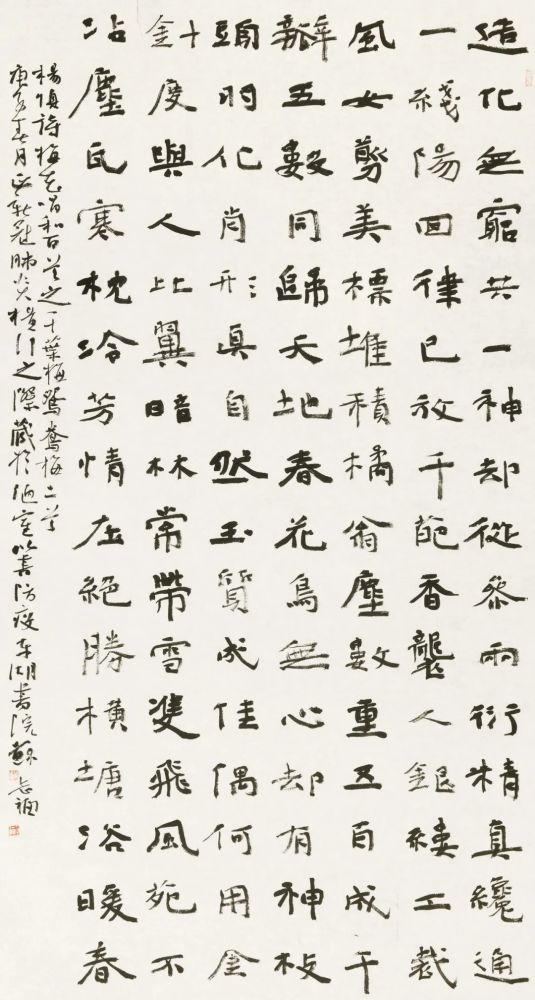 造化無窮共一神却從參兩衍精真纔通
一綫陽回律已放千葩香襲人銀縷工裁
風女剪美標堆積橘翁塵數重五百成千
瓣五數同歸天地春花鳥無心却有神枝
頭羽化肖形真自然玉質成佳偶何用金
針度與人比翼暗林常帶雪雙飛風苑不
沾塵瓦寒枕冷芳情在絕勝橫塘浴暖春
楊慎詩梅花唱和百首之千葉梅鴛鴦梅二首
庚子月正新冠肺炎橫行之際藏於陋室以書防疫東湖書院蘇